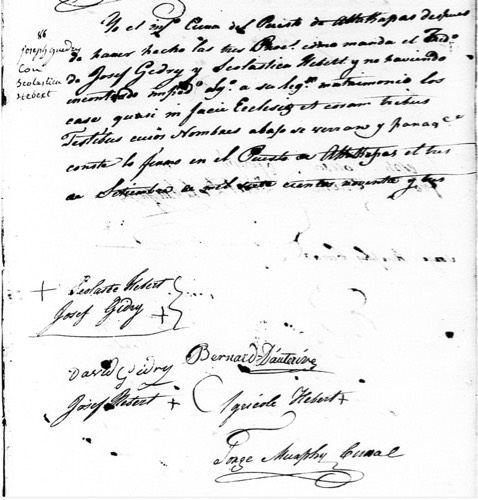 86
Joseph Guedry
Con
Scolastica
Hebert
Yo el infro Cura del Puesto de Attakapas despues
de haver hecho las tres Procl. como manda el Trido
de Josef Gedry y Scolastica Hebert y no haviendo
encontrado impido algo a su legmo matrimonio los
case quasi in facie Ecclesiæ et coram tribus
Testibus cuios Nombres abajo se verran y para qe
conste lo firmo en el Puesto de Attakapas el tres
de Setiembre de mil siete cientos noventa y tres
+ Scolaste Hebert
Josef Gidry +
David Guidry
Bernard Dautaive
Josef Hebert +
Agricole Hebert +
Jorge Murphy Curral